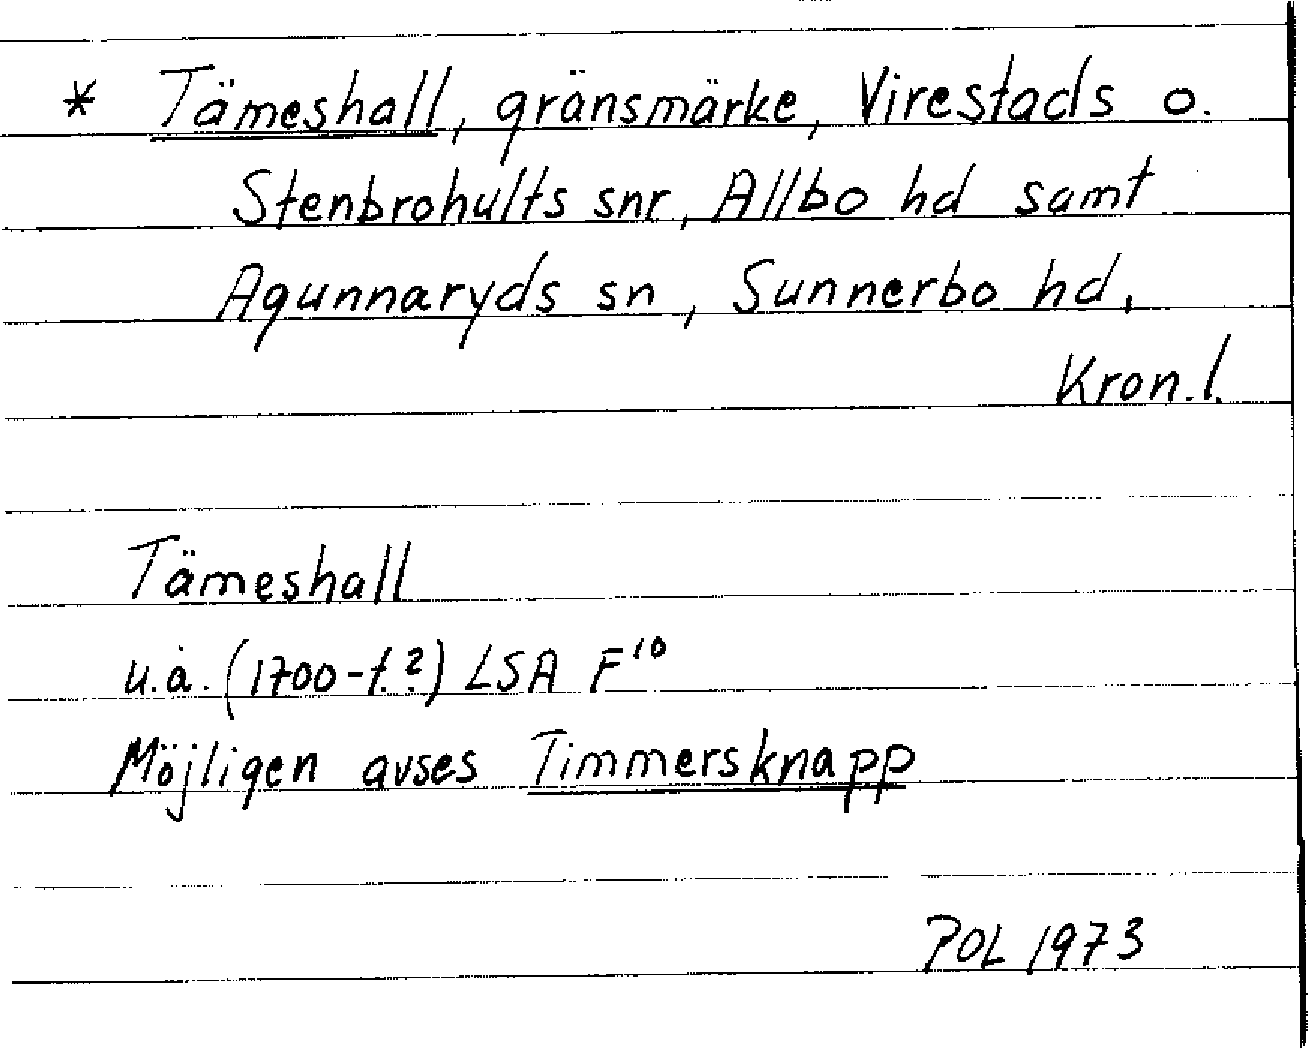 * Tämeshall, gränsmärke, Virestads o.
Stenbrohults snr, Allbo hd samt
Agunnaryds sn, Sunnerbo hd,
Kron.l.
Tämeshall
u.å. (1700-t.?) LSA F¹⁰
Möjligen avses Timmersknapp
POL 1973